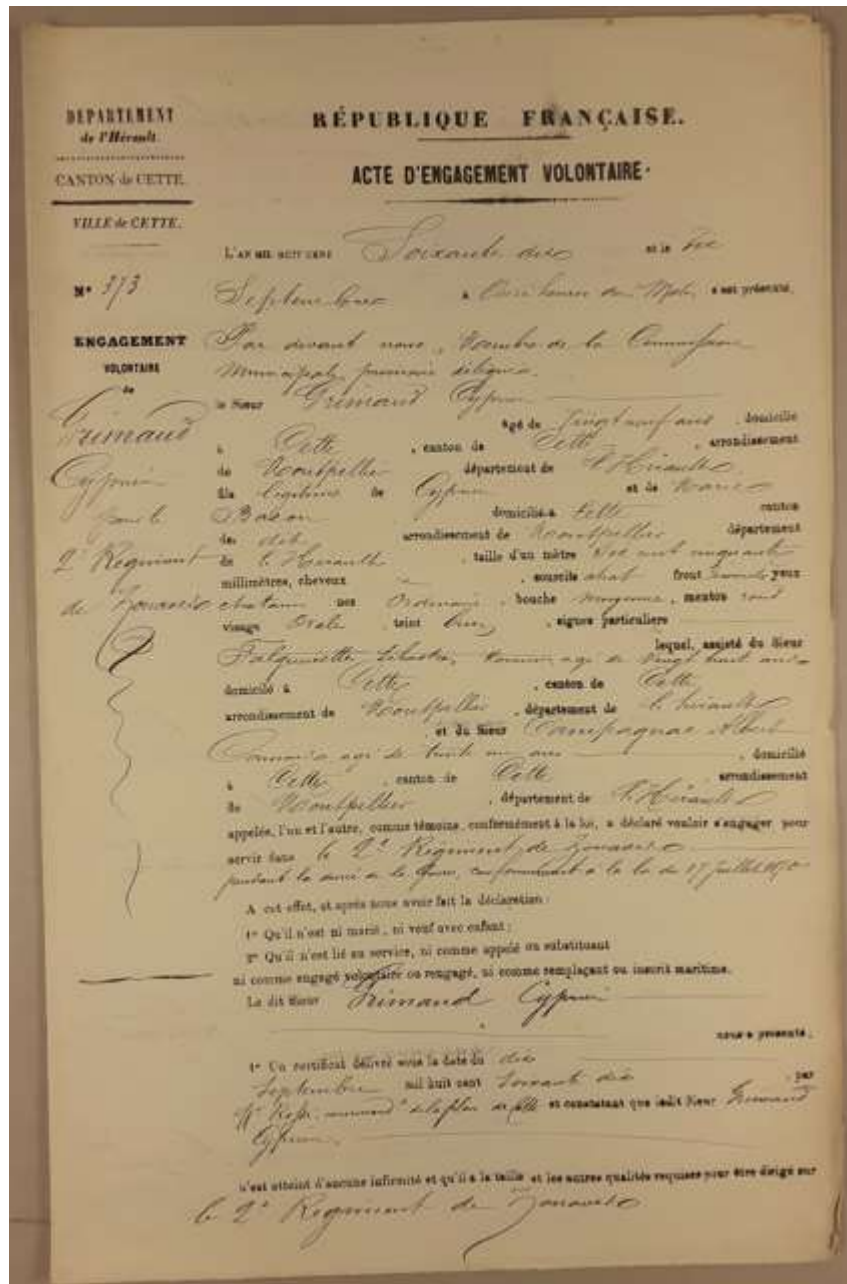 DÉPARTEMENT
de l'Hérault
CANTON de CETTE.
VILLE de CETTE.
N° 373
ENGAGEMENT
VOLONTAIRE
de
Grimaud
Cyprien
pour le
2e Regiment
de Zouaves
RÉPUBLIQUE FRANÇAISE.
ACTE D'ENGAGEMENT VOLONTAIRE.
L'AN MIL HUIT CENT Soixante dix et le dix
Septembre à heures du s'est présenté,
Par devant nous, Membre de la Commission
Municipale provisoire délégué
le Sieur Grimaud Cyprien
âgé de Vingt neuf ans domicilié
à Cette, canton de Cette arrondissement
de Montpellier département de l'Hérault
fils légitime de Cyprien et de
domicilié à Cette canton
de dit arrondissement de Montpellier département
de l'Hérault, taille d'un mètre cinquante
millimètres, cheveux sourcils front yeux
chatain nez Ordinaire, bouche moyenne, menton rond
visage Ovale teint, signes particuliers
lequel, assisté du Sieur
âgé de Vingt huit ans
domicilié à Cette, canton de Cette
arrondissement de Montpellier, département de l'Hérault
et du Sieur Campagnac Albert
agé de trente un ans, domicilié
à Cette canton de Cette arrondissement
de Montpellier, département de l'Hérault
appelés, l'un et l'autre, comme témoins, conformément à la loi, a déclaré vouloir s'engager pour
servir dans le 2e Regiment de Zouaves
pendant la durée de la guerre, conformément à la loi du 17 juillet 1870
A cet effet, et après nous avoir fait la déclaration :
1° Qu'il n'est ni marié, ni veuf avec enfant ;
2° Qu'il n'est lié au service, ni comme appelé ou substituant
ni comme engagé volontaire ou rengagé, ni comme remplaçant ou inscrit maritime.
Le dit sieur Grimaud Cyprien
nous a présenté,
1° Un certificat délivré sous la date du dix
Septembre mil huit cent Soixante dix par
de la place de Cette et constatant que ledit Sieur Grimaud
Cyprien
n'est atteint d'aucune infirmité et qu'il a la taille et les autres qualités requises pour être dirigé sur
le 2e Regiment de Zouaves